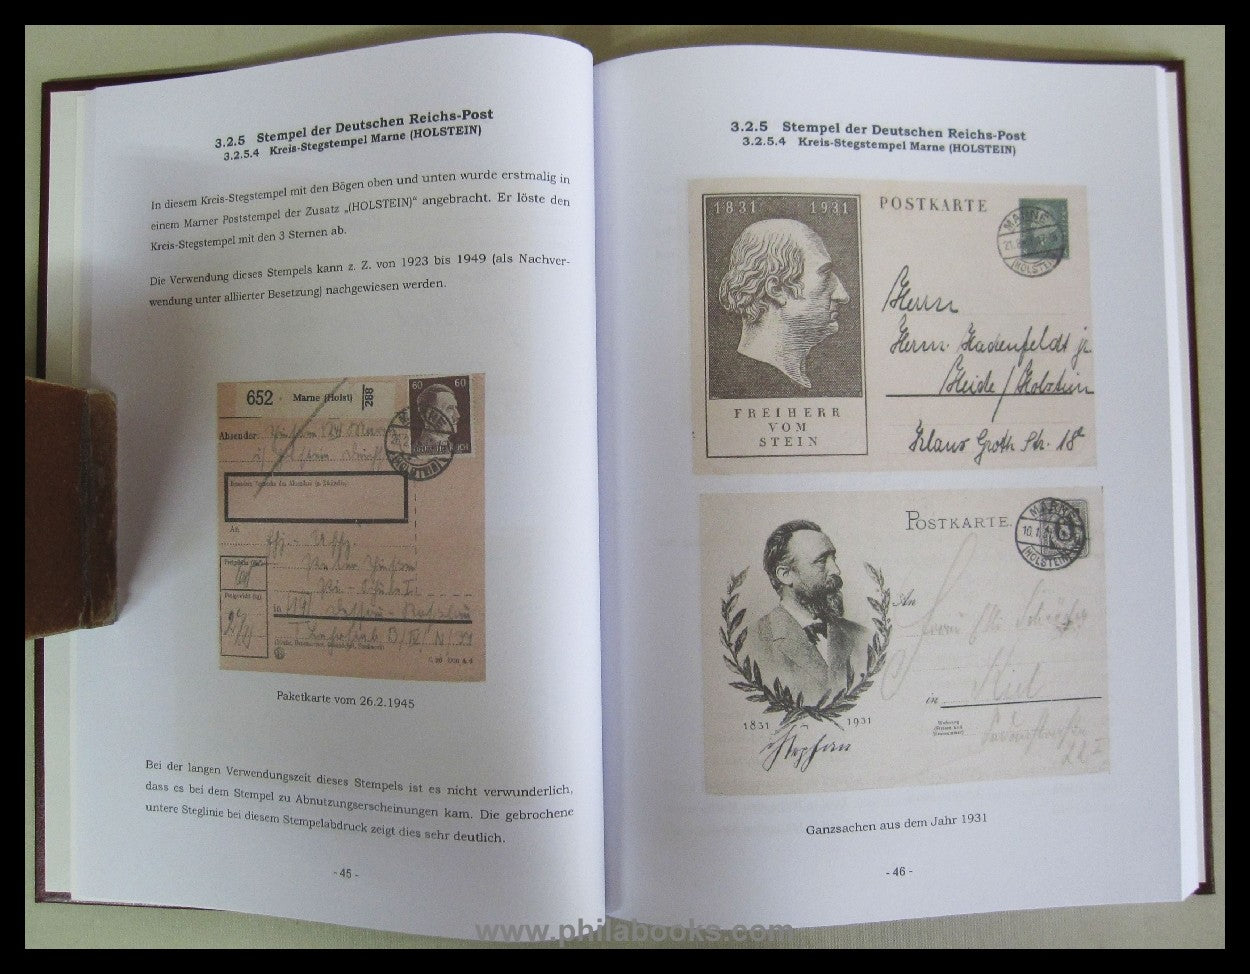 3.2.5 Stempel der Deutschen Reichs-Post
3.2.5.4 Kreis-Stegstempel Marne (HOLSTEIN)
In diesem Kreis-Stegstempel mit den Bögen oben und unten wurde erstmalig in
einem Marner Poststempel der Zusatz „(HOLSTEIN)“ angebracht. Er löste den
Kreis-Stegstempel mit den 3 Sternen ab.
Die Verwendung dieses Stempels kann z. Z. von 1923 bis 1949 (als Nachver-
wendung unter alliierter Besetzung) nachgewiesen werden.
652 Marne (Holst) 288
60 60
MARNE
(HOLSTEIN)
Absender:
An
in
Paketkarte vom 26.2.1945
Bei der langen Verwendungszeit dieses Stempels ist es nicht verwunderlich,
dass es bei dem Stempel zu Abnutzungserscheinungen kam. Die gebrochene
untere Steglinie bei diesem Stempelabdruck zeigt dies sehr deutlich.
- 45 -
3.2.5 Stempel der Deutschen Reichs-Post
3.2.5.4 Kreis-Stegstempel Marne (HOLSTEIN)
1831 1931
FREIHERR
VOM
STEIN
POSTKARTE
MARNE
(HOLSTEIN)
Herrn
Herrn Hadenfeldt jr.
Heide / Holstein
Klaus Groth Str. 18a
POSTKARTE
MARNE
(HOLSTEIN)
An
in Kiel
1831 1931
Stephan
Ganzsachen aus dem Jahr 1931
- 46 -
www.philabooks.com